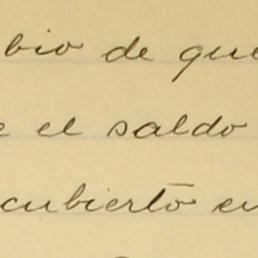 bio de que
e el saldo
cubierto en